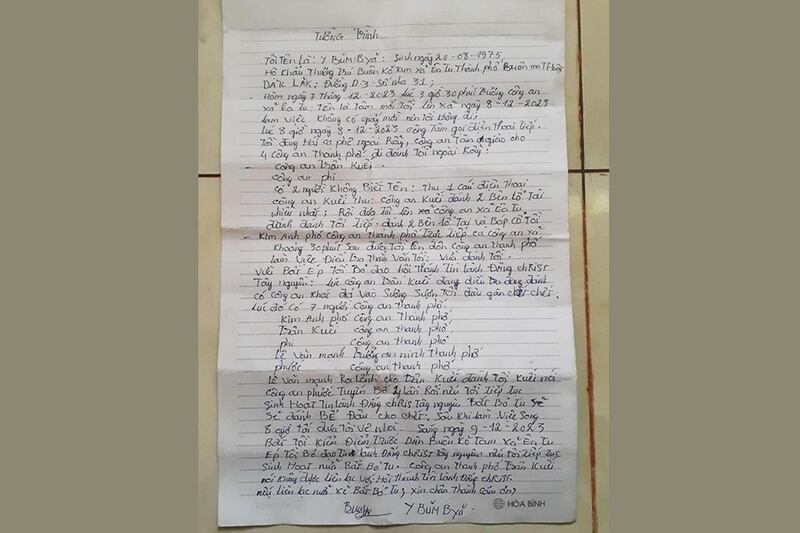 Tường Trình
Tôi Tên Là: Y BŬM: BYĂ: Sinh ngày 20-08-1975
Hộ Khẩu Thường Trú Buôn Kô Tam xã Ea Tu Thành phố Buôn ma Thuột
DAK LAK; Đường D-3- Số nhà 31;
- Hôm ngày 7 tháng 12-2023 lúc 3 giờ 30 phút Trưởng công an
xã Ea Tu: Tên là Tám mời Tôi lên xã ngày 8-12-2023
làm việc Không có giấy mời nên Tôi không đi;
Lúc 8 giờ ngày 8-12-2023 công Tám gọi điện Thoại Tiếp.
Tôi đang Hái cà phê ngoài Rẫy, công an Tám giao cho
4 công an Thành phố đi đánh Tôi ngoài Rẫy:
- công an Trần Kuối.
công an phi
có 2 người không Biết Tên: Thu 1 cái điện Thoại
công an Kuối thu: công an Kuối đánh 2 Bên lổ Tai
nhiều nhất; Rồi đưa Tôi lên xã công an xã Ea Tu
đánh Tôi Tiếp. đánh 2 Bên lổ Tai và Bóp cổ Tôi
- Kim Anh phó công an Thành phố Trực Tiếp cả công an xã
Khoảng 30 phút sau đưa Tôi lên đồn công an Thành phố
làm việc Điều Tra Thẩm Vấn Tôi: Vừa đánh Tôi.
Vừa Bắt Ép Tôi Bỏ đạo hội Thánh Tin lành Đấng chRiST
Tây nguyên: lúc công an Trần Kuối đang điều Tra đang đánh
có công an Khải đá vào Sườn Tôi đau gần chết.
Lúc đó có 7 người công an Thành phố
Kim Anh phó công an Thành phố
Trần Kuối công an Thành phố
phi công an Thành phố
Lê Văn mạnh Trưởng an ninh Thành phố
phước công an Thành phố
Lê Văn mạnh Ra lệnh cho Trần Kuối đánh Tôi Kuối nói
công an phước Tuyên Bố lần Rồi nếu Tôi Tiếp Tục
Sinh Hoạt Tin lành Đấng chRiST Tây nguyên Bắt Bỏ Tù Sẽ
Sẽ đánh BỂ Đầu cho chết. Sau khi làm việc Song
8 giờ tối đưa Tôi về nhà. Sang ngày 9-12-2023
Bắt Tôi Kiểm Điểm Trước Dân Buôn Kô Tam xã Ea Tu
Ép Tôi Bỏ đạo Tin lành Đấng chRiST Tây nguyên. nếu Tôi Tiếp Tục
Sinh Hoạt nữa Bắt Bỏ Tù. công an Thành phố Trần Kuối
nói Không được liên lạc với Hội Thánh Tin lành Đấng chRiST.
nếu liên lạc nữa Bắt Bỏ Tù; xin chân Thành cảm ơn?
Y BŬM BYĂ.
HÒA BÌNH